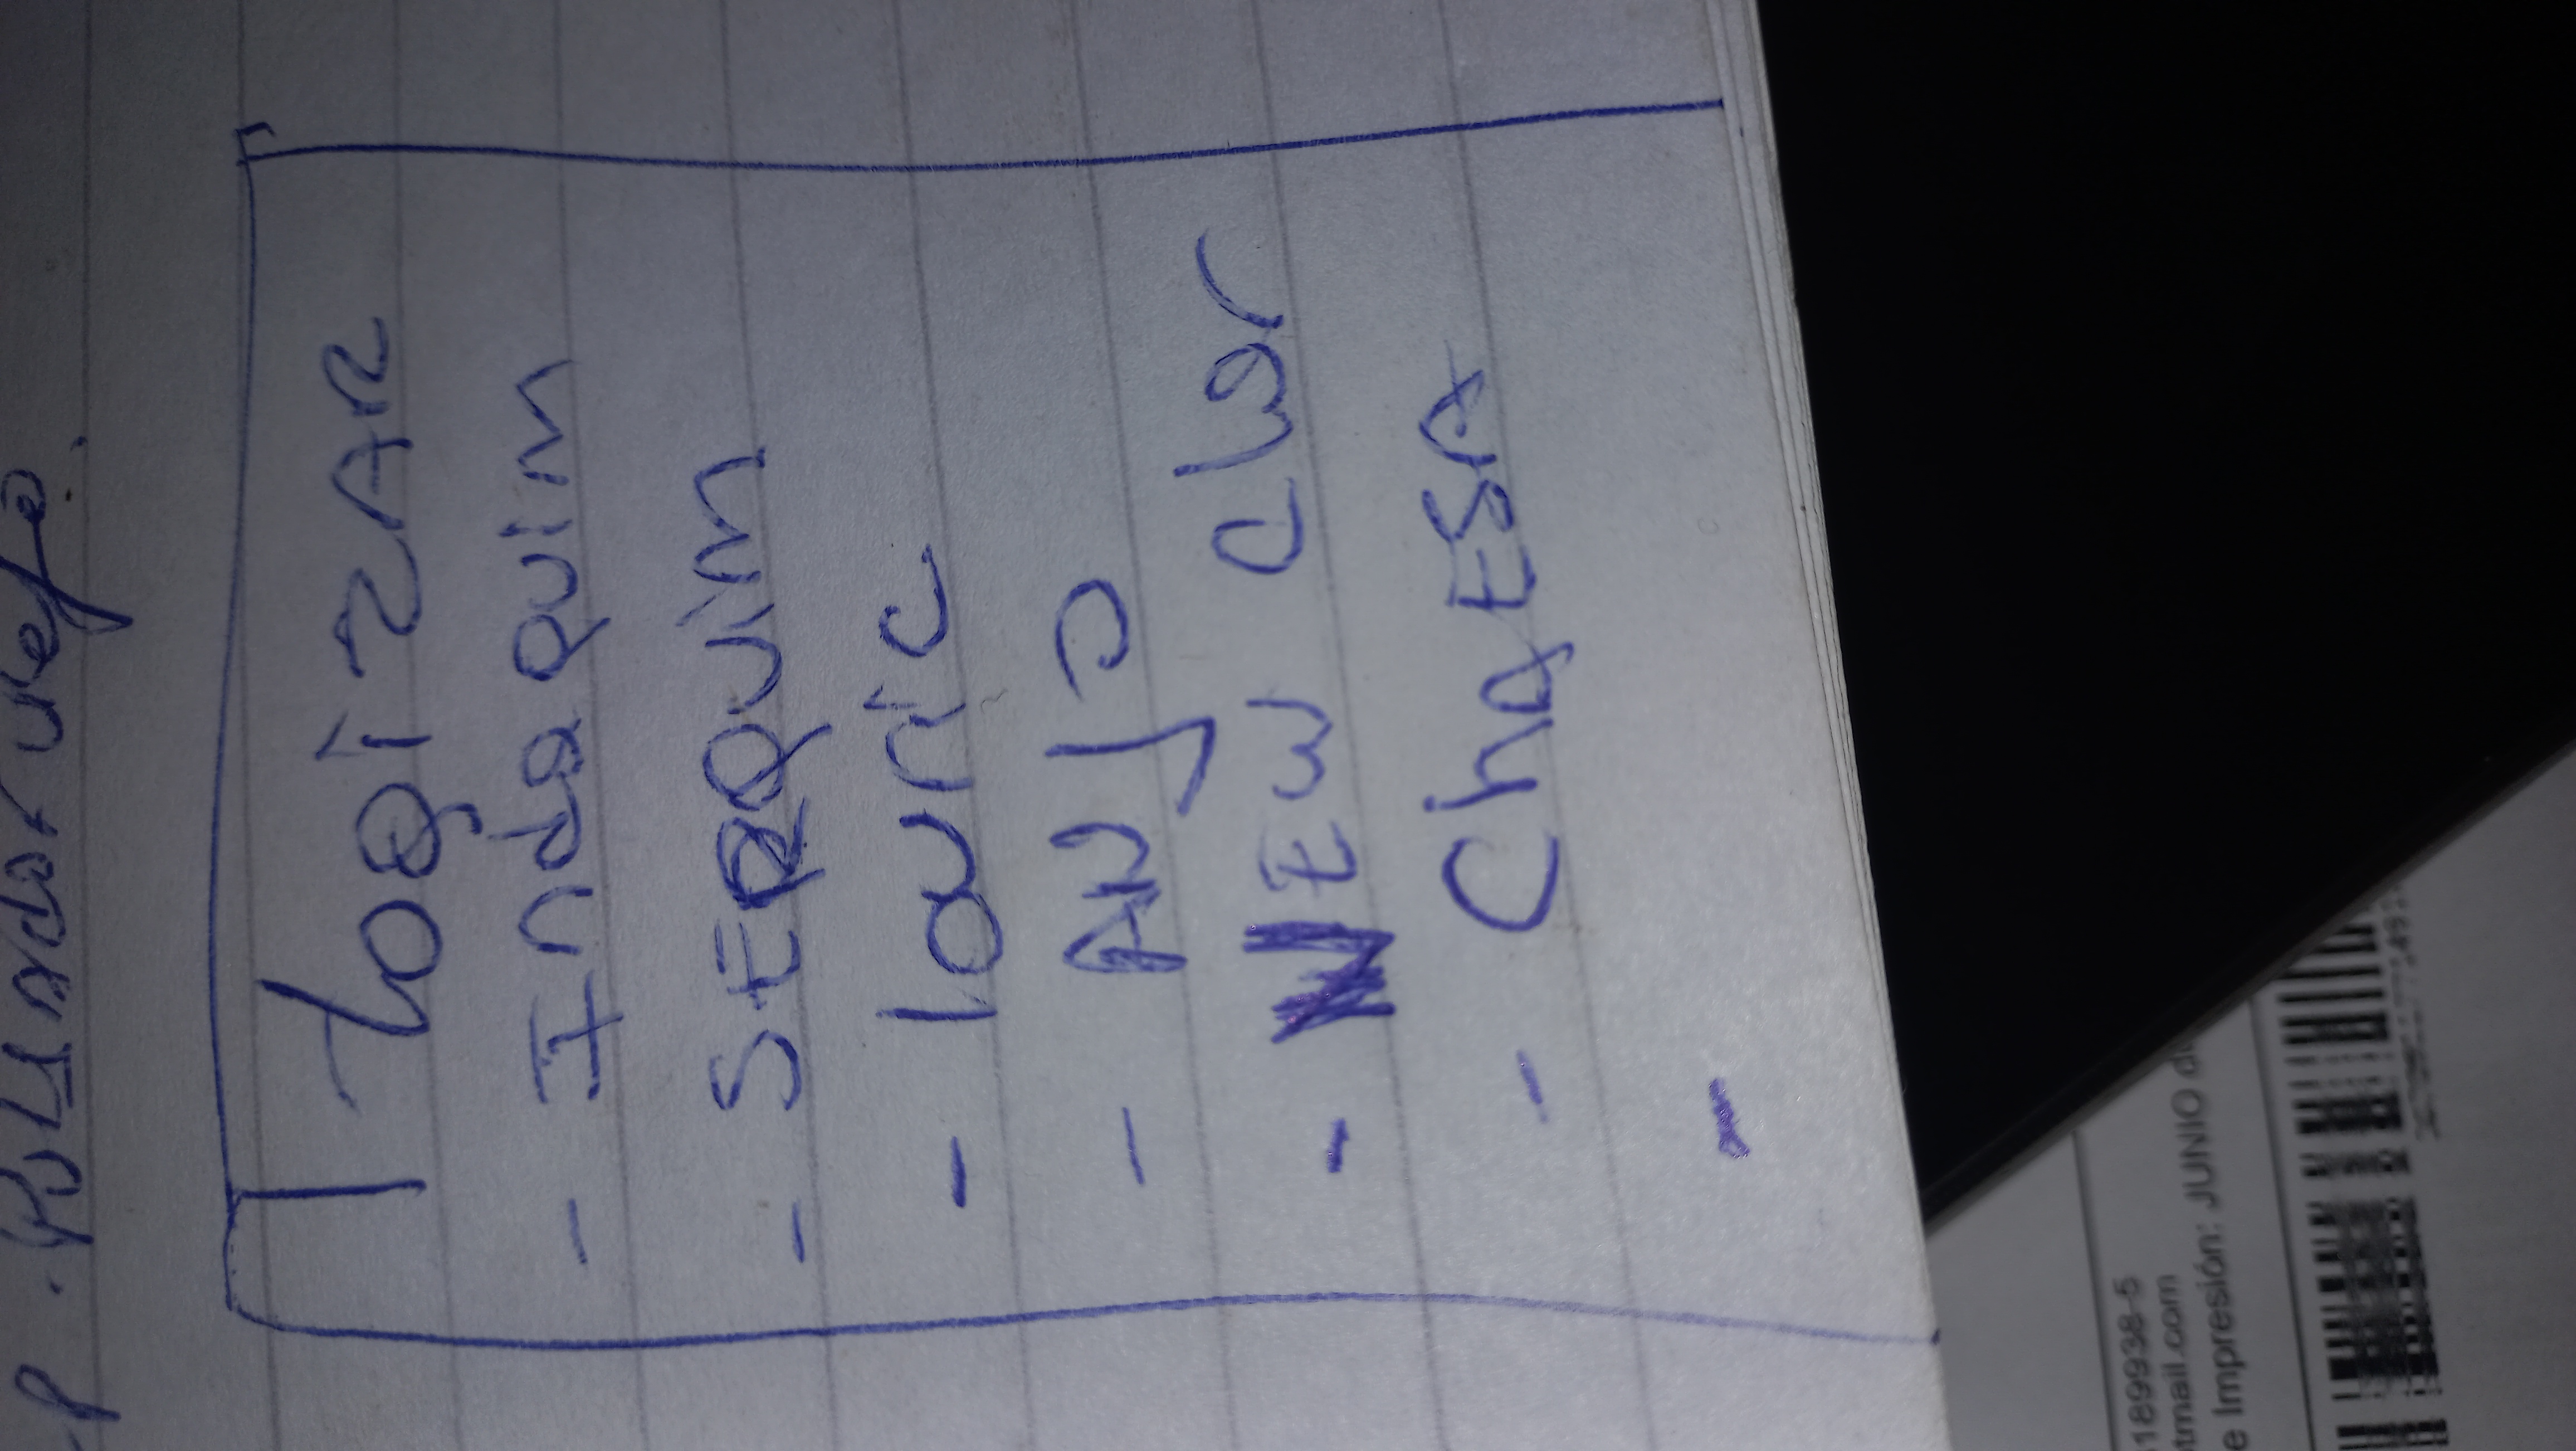 logizAR
- Indaquim
- SERQUIM
- louric
- ANJO
- NEW clor
- ChAESA
-
189938-5
tmail.com
e Impresión: JUNIO de